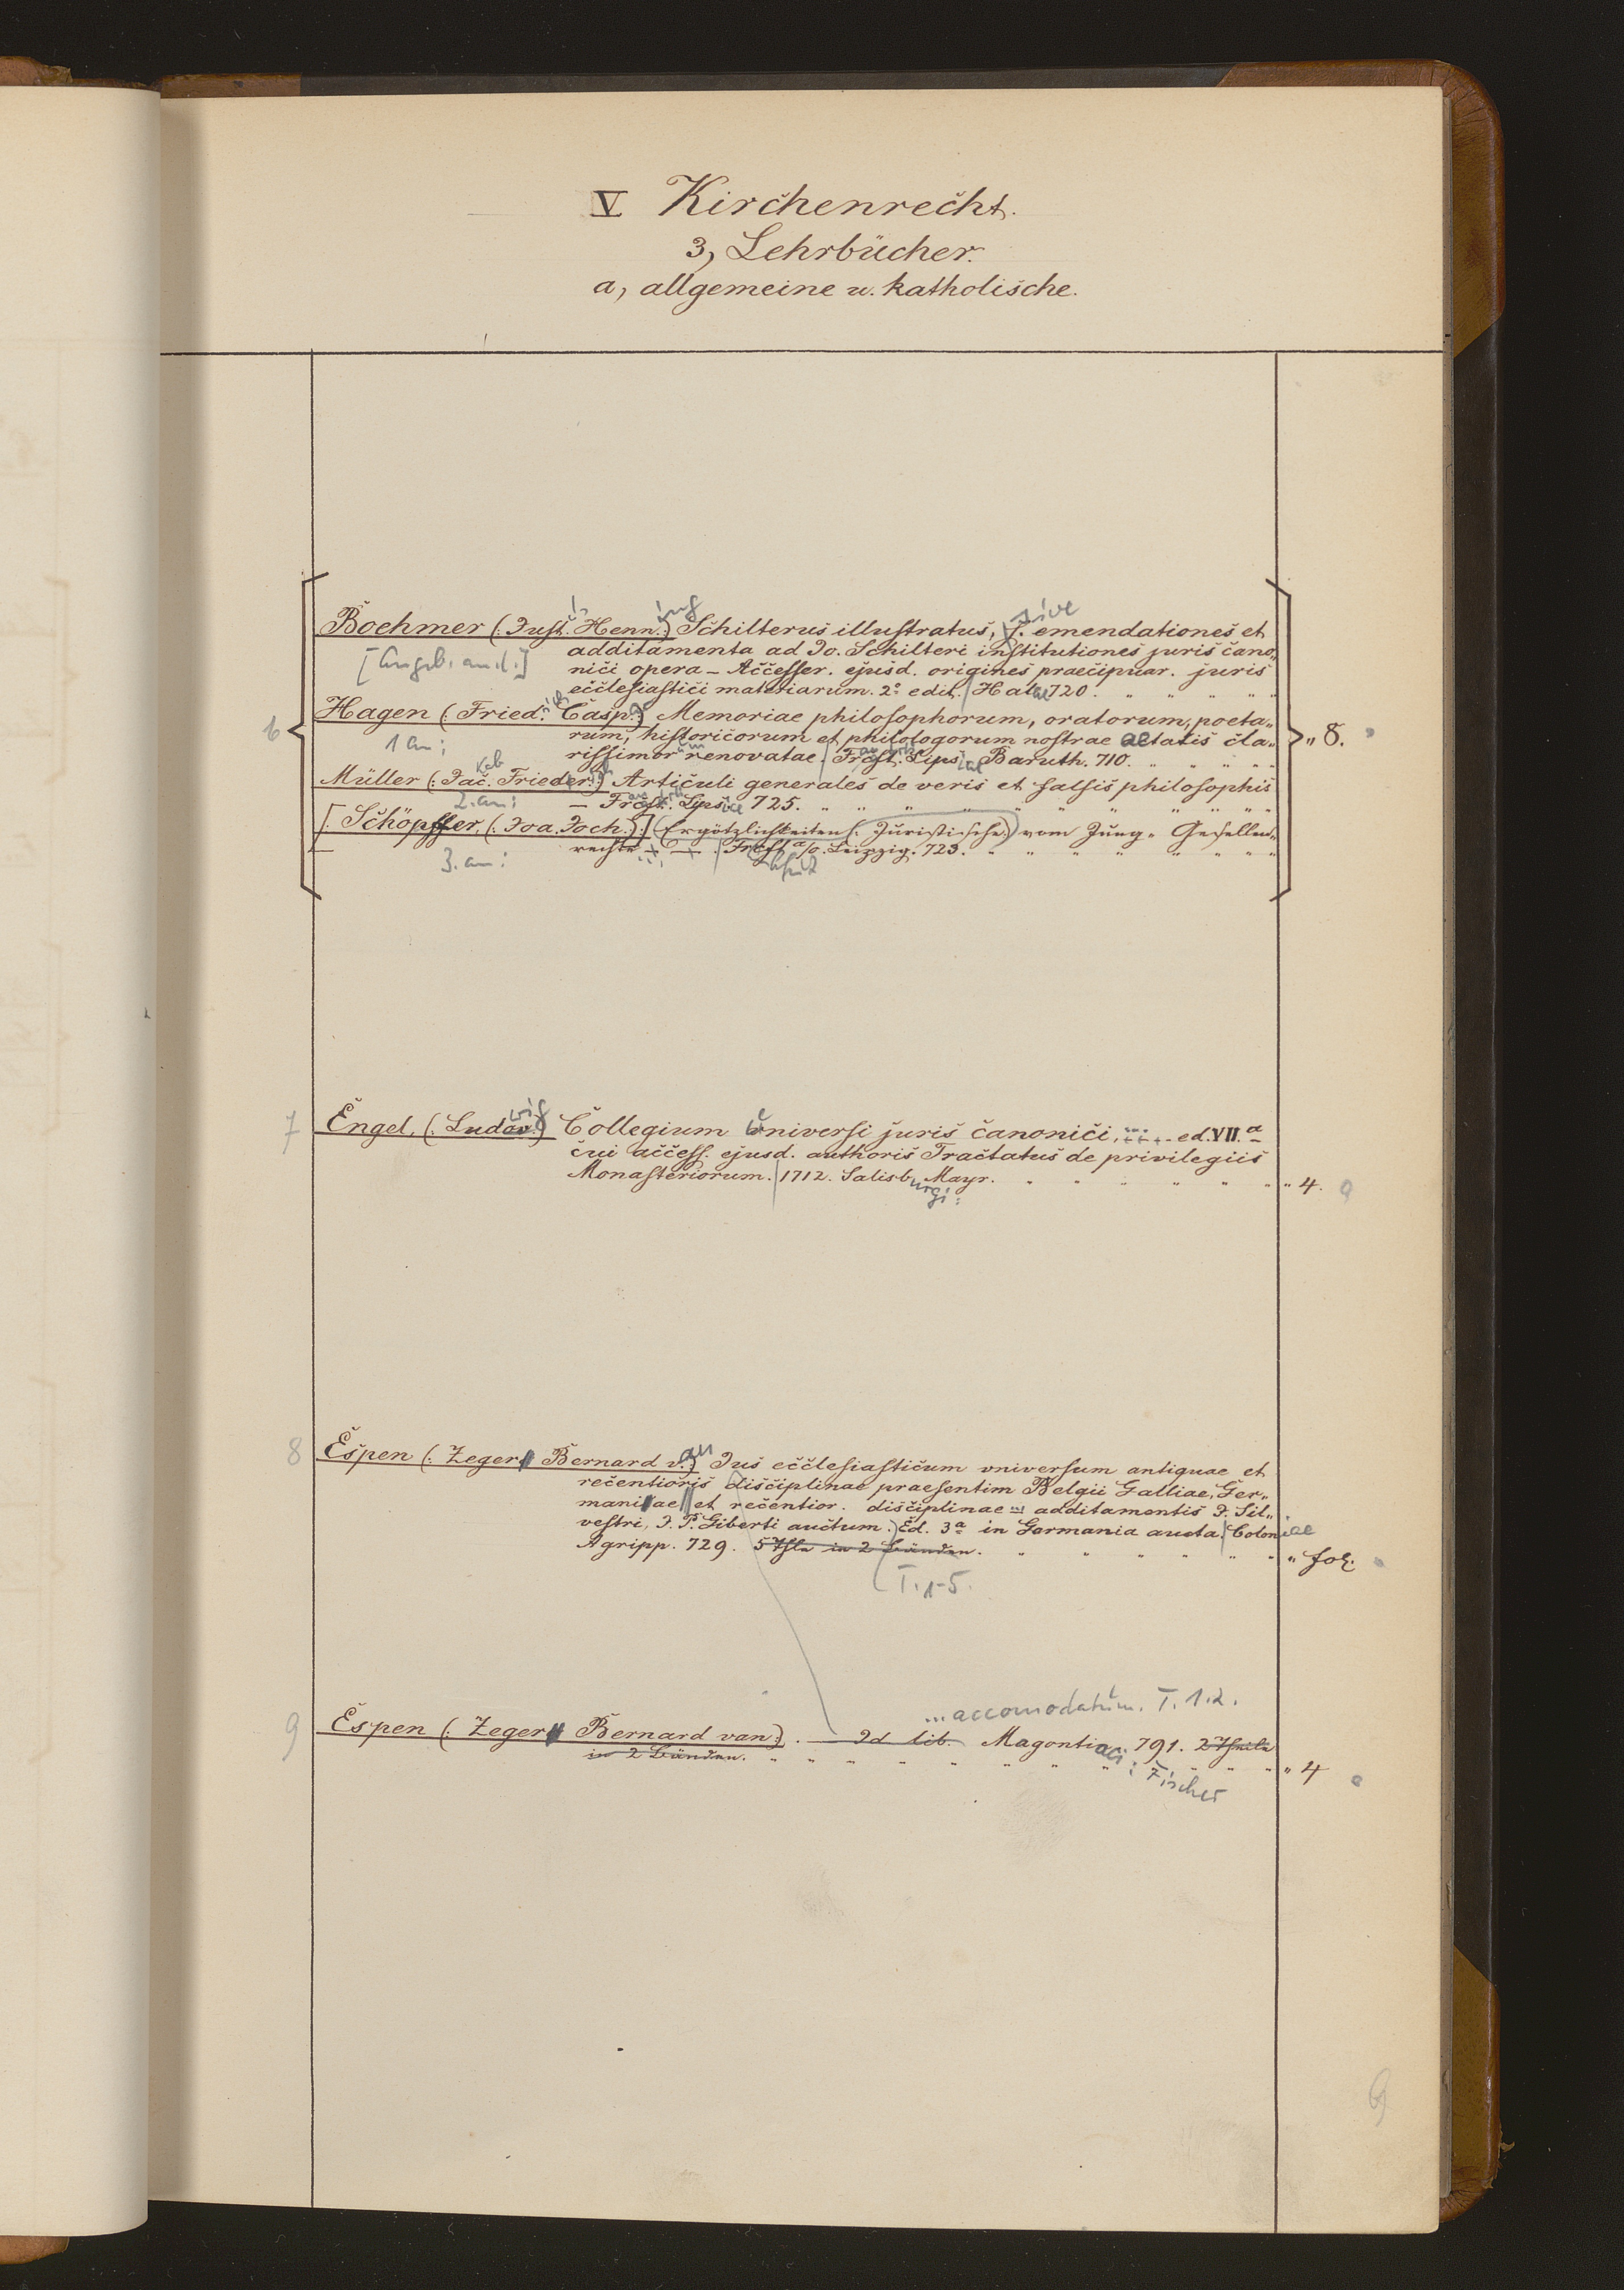 V Kirchenrecht.
3, Lehrbücher.
a, allgemeine u. katholische.
6
Boehmer (: Just. Henn.:) Schilterus illustratus, s. sive emendationes et
[Angeb. an.(:]
additamenta ad Jo. Schilteri institutiones juris cano„
nici opera – Accesser. ejusd. origines praecipuar. juris
ecclesiastici materiarum. 2° edit. Halae 720.
Hagen (: Fried. Casp.:) Memoriae philosophorum, oratorum, poeta„
1 an:
rum, historicorum et philologorum nostrae aetatis cla„
rissimorum renovatae. Frcft. Lips. Baruth. 710.
„ 8.
Müller (: Jac. Frieder.:) Articuli generales de veris et falsis philosophis
2. an:
– Frcft. Lpsiae 725.
[: Schöpffer, (: Joa. Joch.:):] (Ergötzlichkeiten (: Juristische:) vom Jung„ Gesellen„
3. an:
rechte Frcft a/o. Leipzig. 723.
7
Engel, (: Ludov.:) Collegium universi juris canonici, ... ed. VII.a
cui access. ejusd. authoris Tractatus de privilegiis
Monasteriorum. 1712. Salisburgi: Mayr. „ 4.
8
Espen (: Zeger Bernard van:) Jus ecclesiasticum vniversum antiquae et
recentioris disciplinae praesentim Belgii Galliae, Ger„
maniae et recentior. disciplinae ... additamentis J. Sil„
vestri, J. P. Giberti auctum. Ed. 3a in Germania aucta. Coloniae
Agripp. 729. 5 Thle in 2 Bänden. „ fol.
T. 1-5.
...accomodatum. T. 1.2.
9
Espen (: Zeger Bernard van:). – Id lib. Magontiaci: 791. 2 Theile
in 2 Bänden. „ 4
Fischer
9